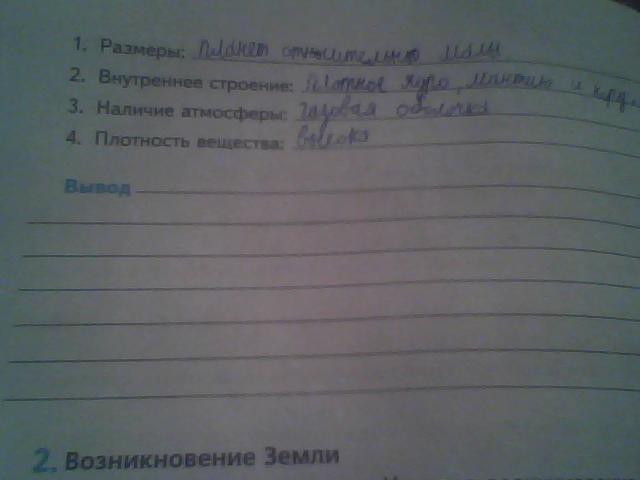 1. Размеры: планет относительно малы
2. Внутреннее строение: плотное ядро, мантию и кору
3. Наличие атмосферы: газовая оболочка
4. Плотность вещества: высока
Вывод
2. Возникновение Земли